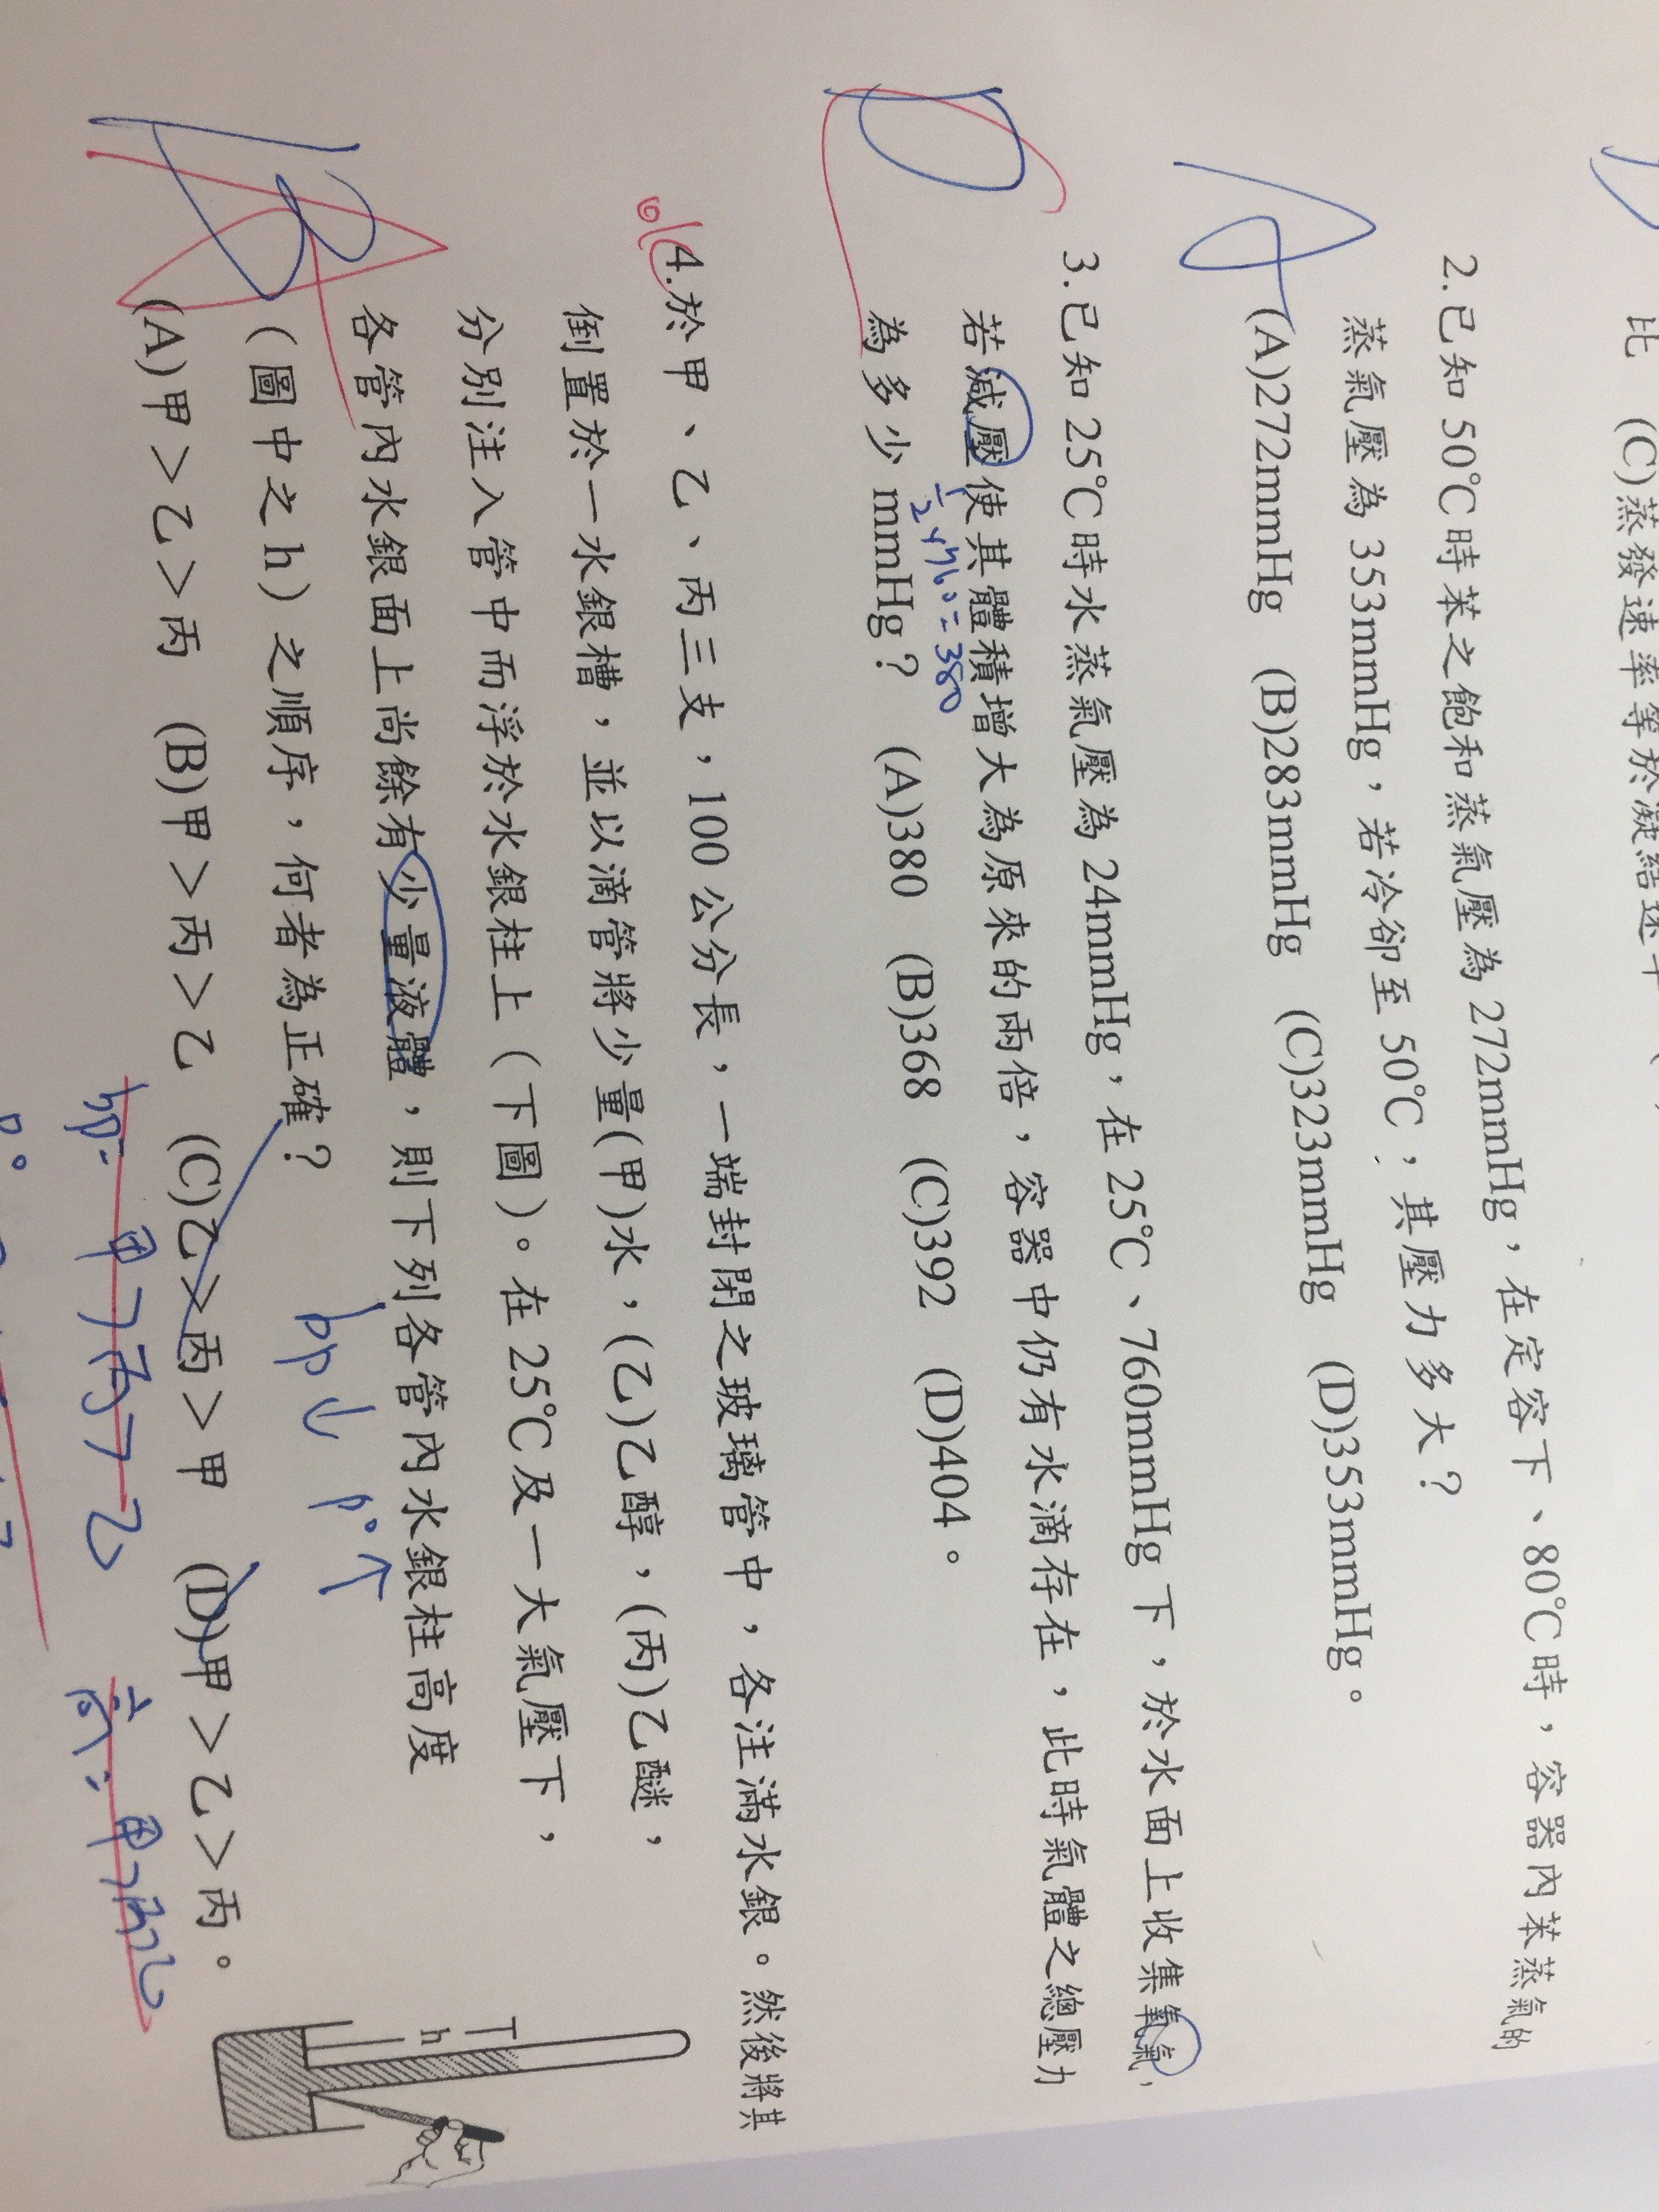 比 (C)蒸發速率等於凝結速率
2.已知50℃時苯之飽和蒸氣壓為272mmHg，在定容下、80℃時，容器內苯蒸氣的
蒸氣壓為353mmHg，若冷卻至50℃，其壓力多大？
(A)272mmHg (B)283mmHg (C)323mmHg (D)353mmHg。
A
3.已知25℃時水蒸氣壓為24mmHg，在25℃、760mmHg下，於水面上收集氧氣，
若減壓使其體積增大為原來的兩倍，容器中仍有水滴存在，此時氣體之總壓力
½×760=380
為多少mmHg？ (A)380 (B)368 (C)392 (D)404。
D
4.於甲、乙、丙三支，100公分長，一端封閉之玻璃管中，各注滿水銀。然後將其
倒置於一水銀槽，並以滴管將少量(甲)水，(乙)乙醇，(丙)乙醚，
分別注入管中而浮於水銀柱上（下圖）。在25℃及一大氣壓下，
各管內水銀面上尚餘有少量液體，則下列各管內水銀柱高度
（圖中之h）之順序，何者為正確？
bp↓ p°↑
(A)甲＞乙＞丙 (B)甲＞丙＞乙 (C)乙＞丙＞甲 (D)甲＞乙＞丙。
B
h
bp: 甲>丙>乙
高: 甲>丙>乙
p°